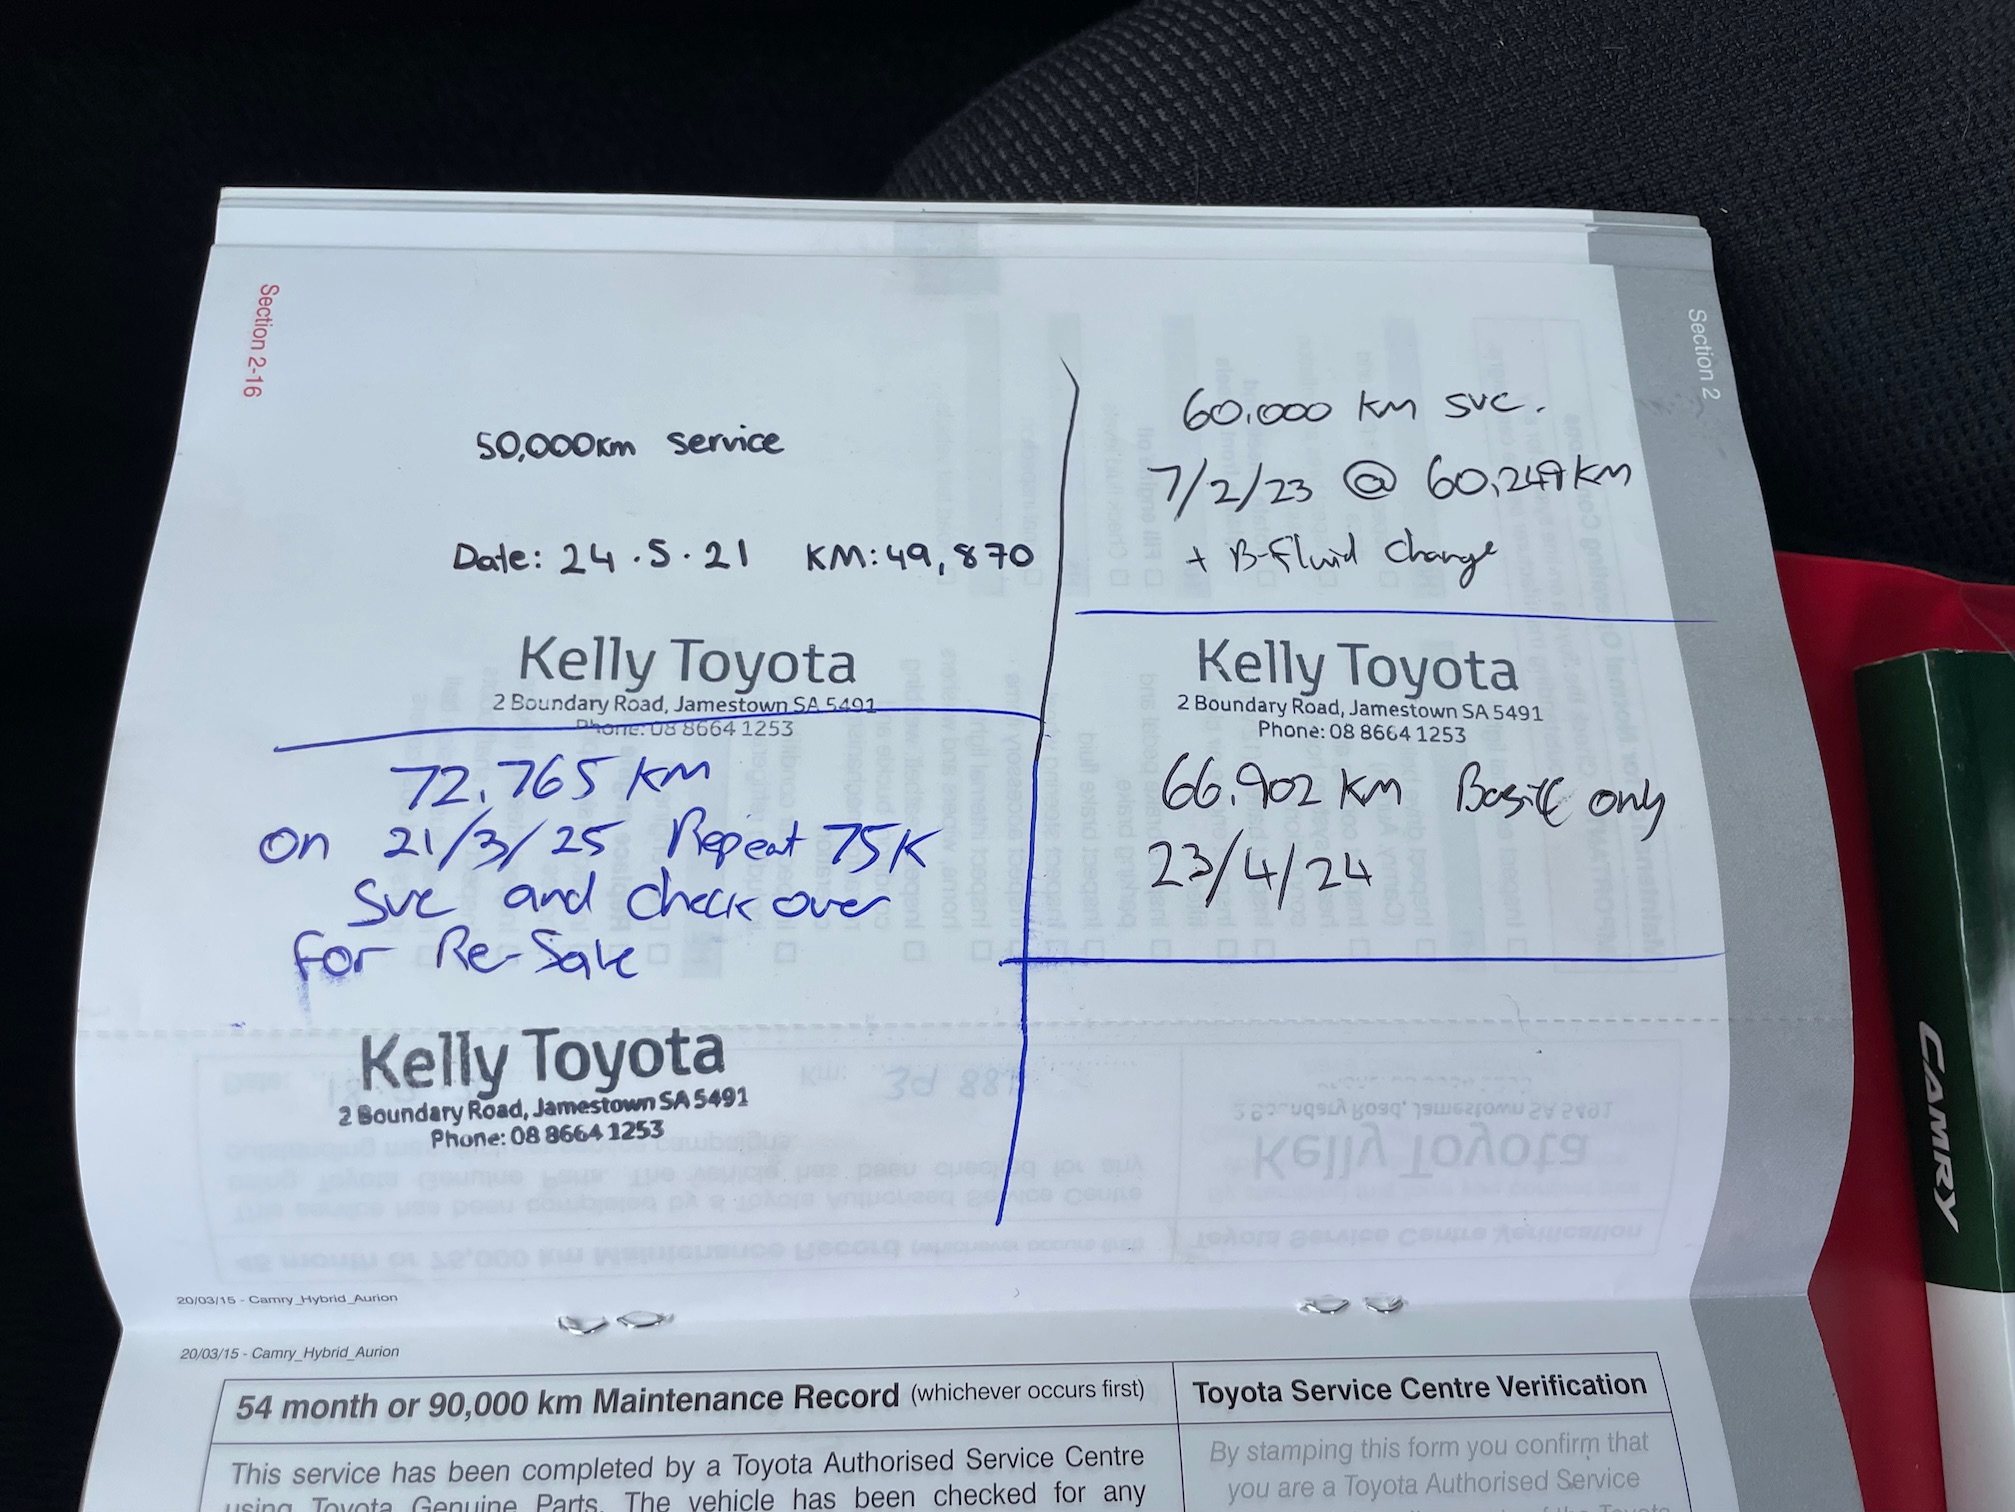 Section 2-16
Section 2
50,000km service
Date: 24.5.21 KM: 49,870
Kelly Toyota
2 Boundary Road, Jamestown SA 5491
Phone: 08 8664 1253
60,000 KM SVC.
7/2/23 @ 60,249KM
+ B-Fluid Change
Kelly Toyota
2 Boundary Road, Jamestown SA 5491
Phone: 08 8664 1253
72,765 KM
on 21/3/25 Repeat 75K
SVC and check over
for Re-Sale
Kelly Toyota
2 Boundary Road, Jamestown SA 5491
Phone: 08 8664 1253
66,902 KM Basic only
23/4/24
20/03/15 - Camry_Hybrid_Aurion
20/03/15 - Camry_Hybrid_Aurion
54 month or 90,000 km Maintenance Record (whichever occurs first)
This service has been completed by a Toyota Authorised Service Centre
using Toyota Genuine Parts. The vehicle has been checked for any
Toyota Service Centre Verification
By stamping this form you confirm that
you are a Toyota Authorised Service
CAMRY